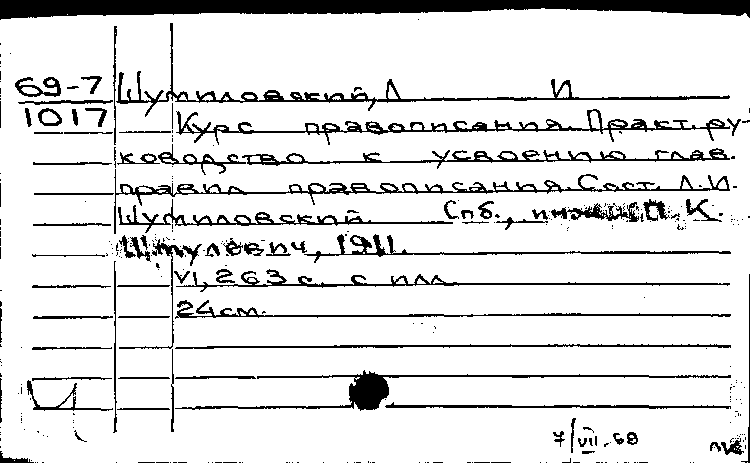 69-7 Шумиловский, Л И
1017 Курс правописания. Практ. ру-
ководство к усвоению глав.
правил правописания. Сост. Л.И.
Шумиловский. Спб., К.
1911.
VI, 263 с. с илл.
24 см.
Ч
7/VII-69